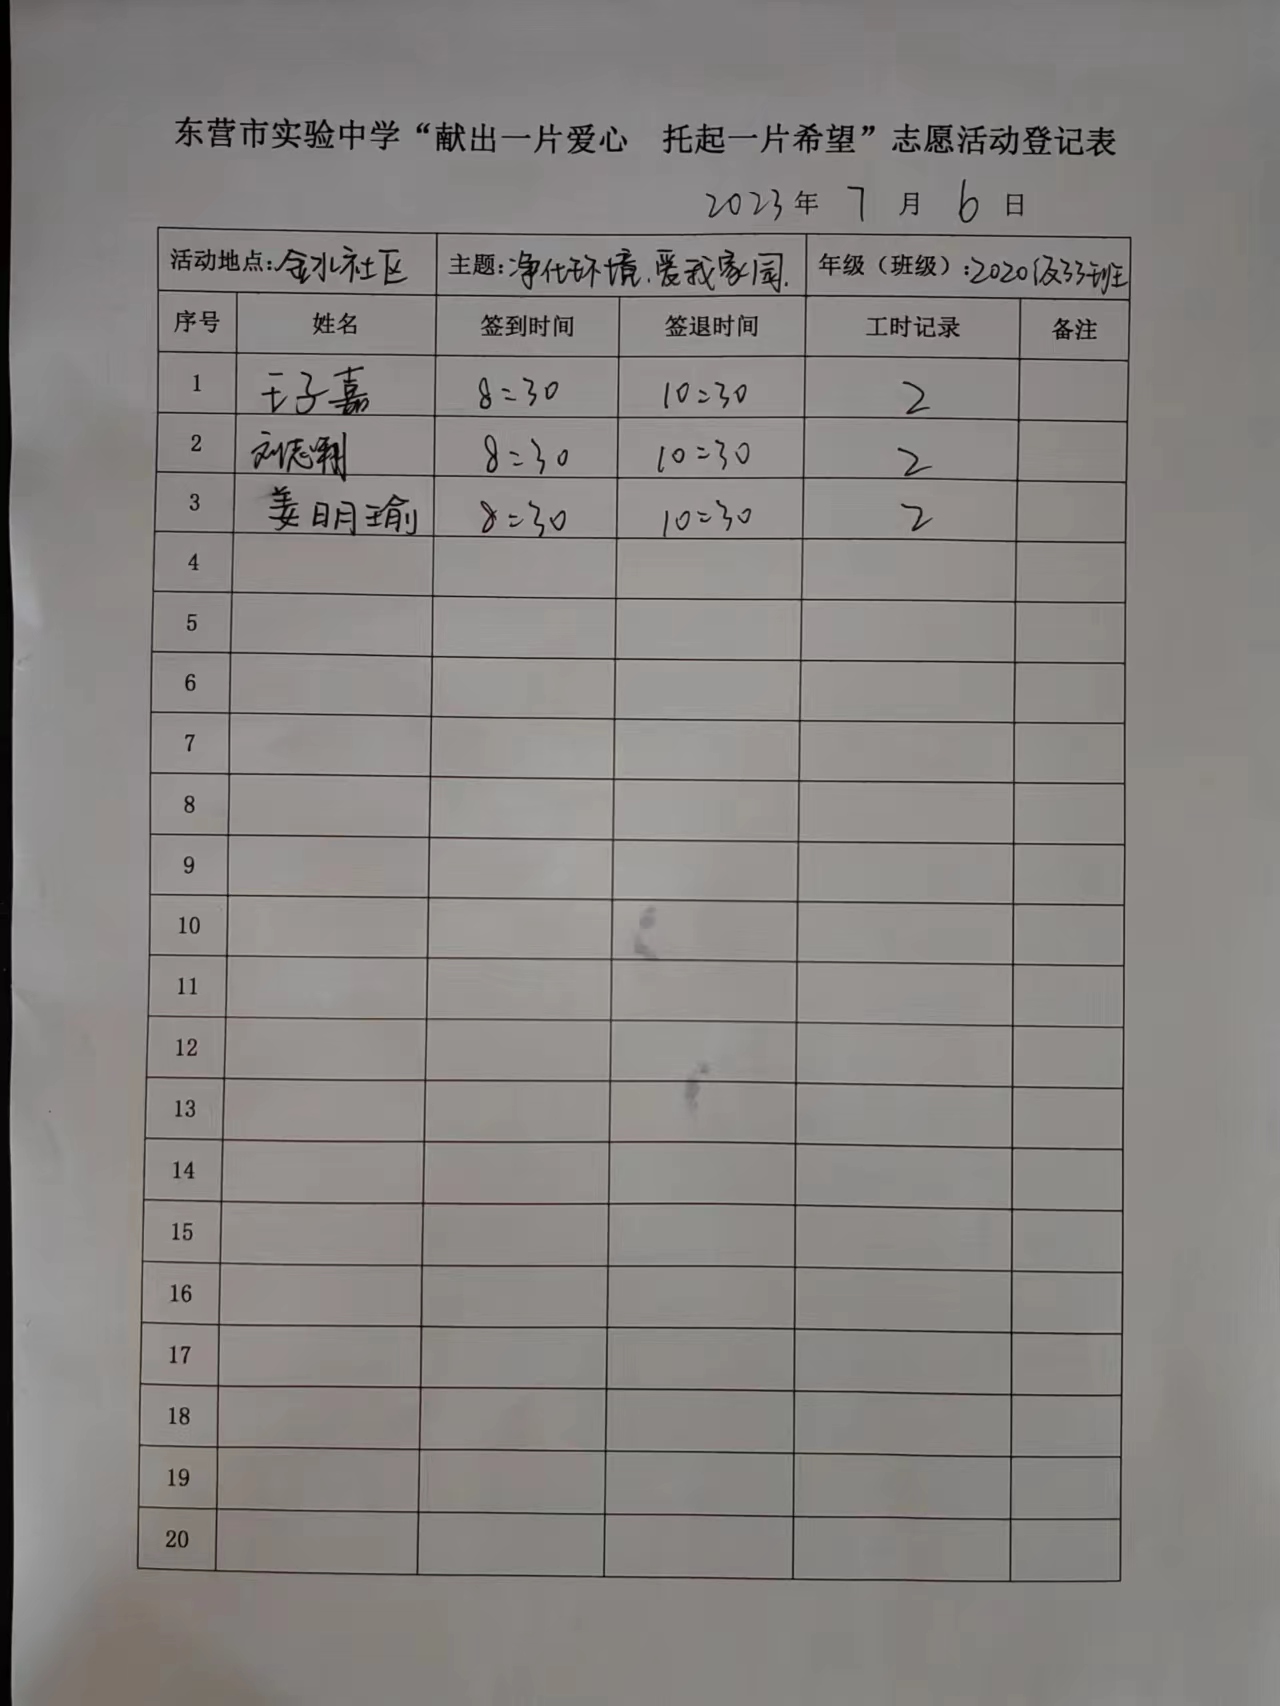 东营市实验中学“献出一片爱心 托起一片希望”志愿活动登记表
2023年 7 月 6 日
活动地点:金水社区 主题:净化环境.爱我家园. 年级（班级）:2020级33班
序号 姓名 签到时间 签退时间 工时记录 备注
1 王子嘉 8:30 10:30 2
2 刘志翔 8:30 10:30 2
3 姜明瑜 8:30 10:30 2
4
5
6
7
8
9
10
11
12
13
14
15
16
17
18
19
20